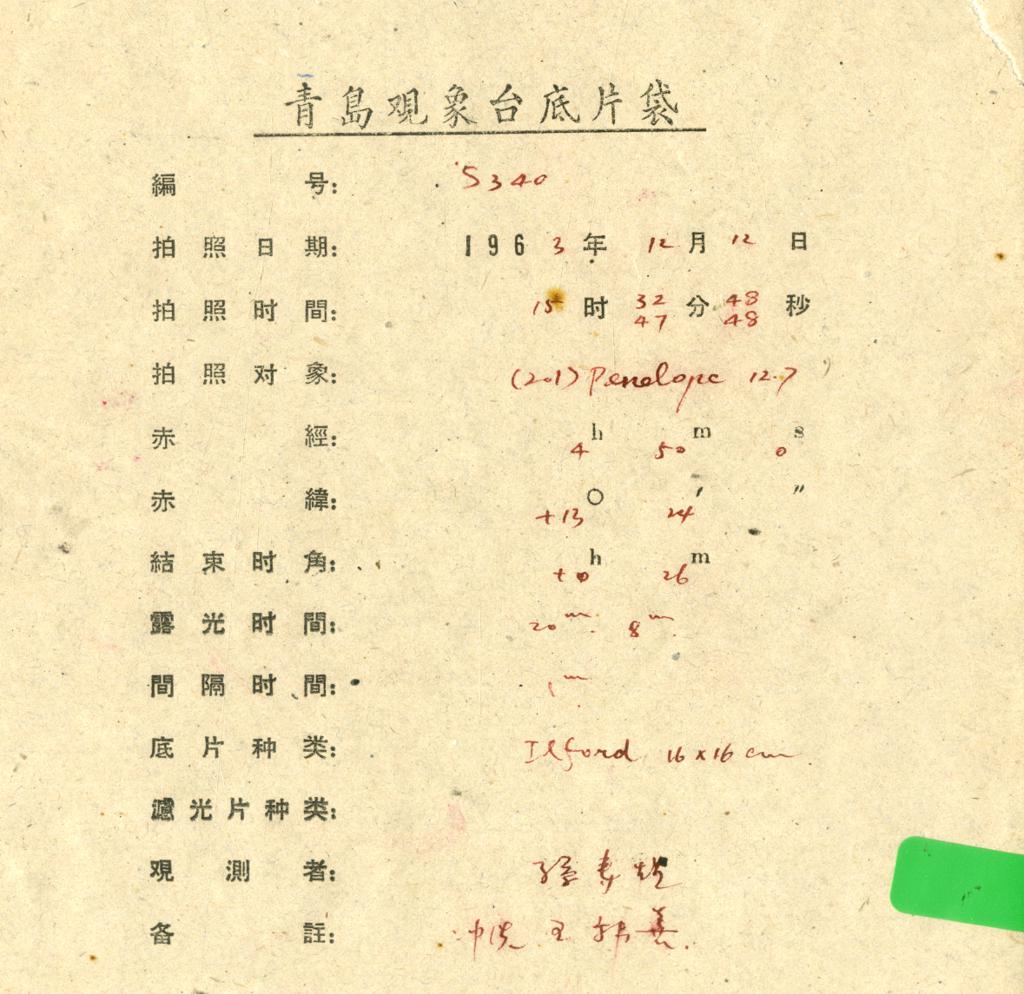 青島观象台底片袋
編号： S340
拍照日期： 1963年 12月12日
拍照时間： 15时 32分 48秒
47 48
拍照对象： (201) Penelope 12.7
赤經： 4h 50m 0s
赤緯： +13° 24′ ″
結束时角： +0h 26m
露光时間： 20m. 8m.
間隔时間： 1m
底片种类： Ilford 16×16 cm.
濾光片种类：
观測者： 孫寿
备註： 冲洗 王